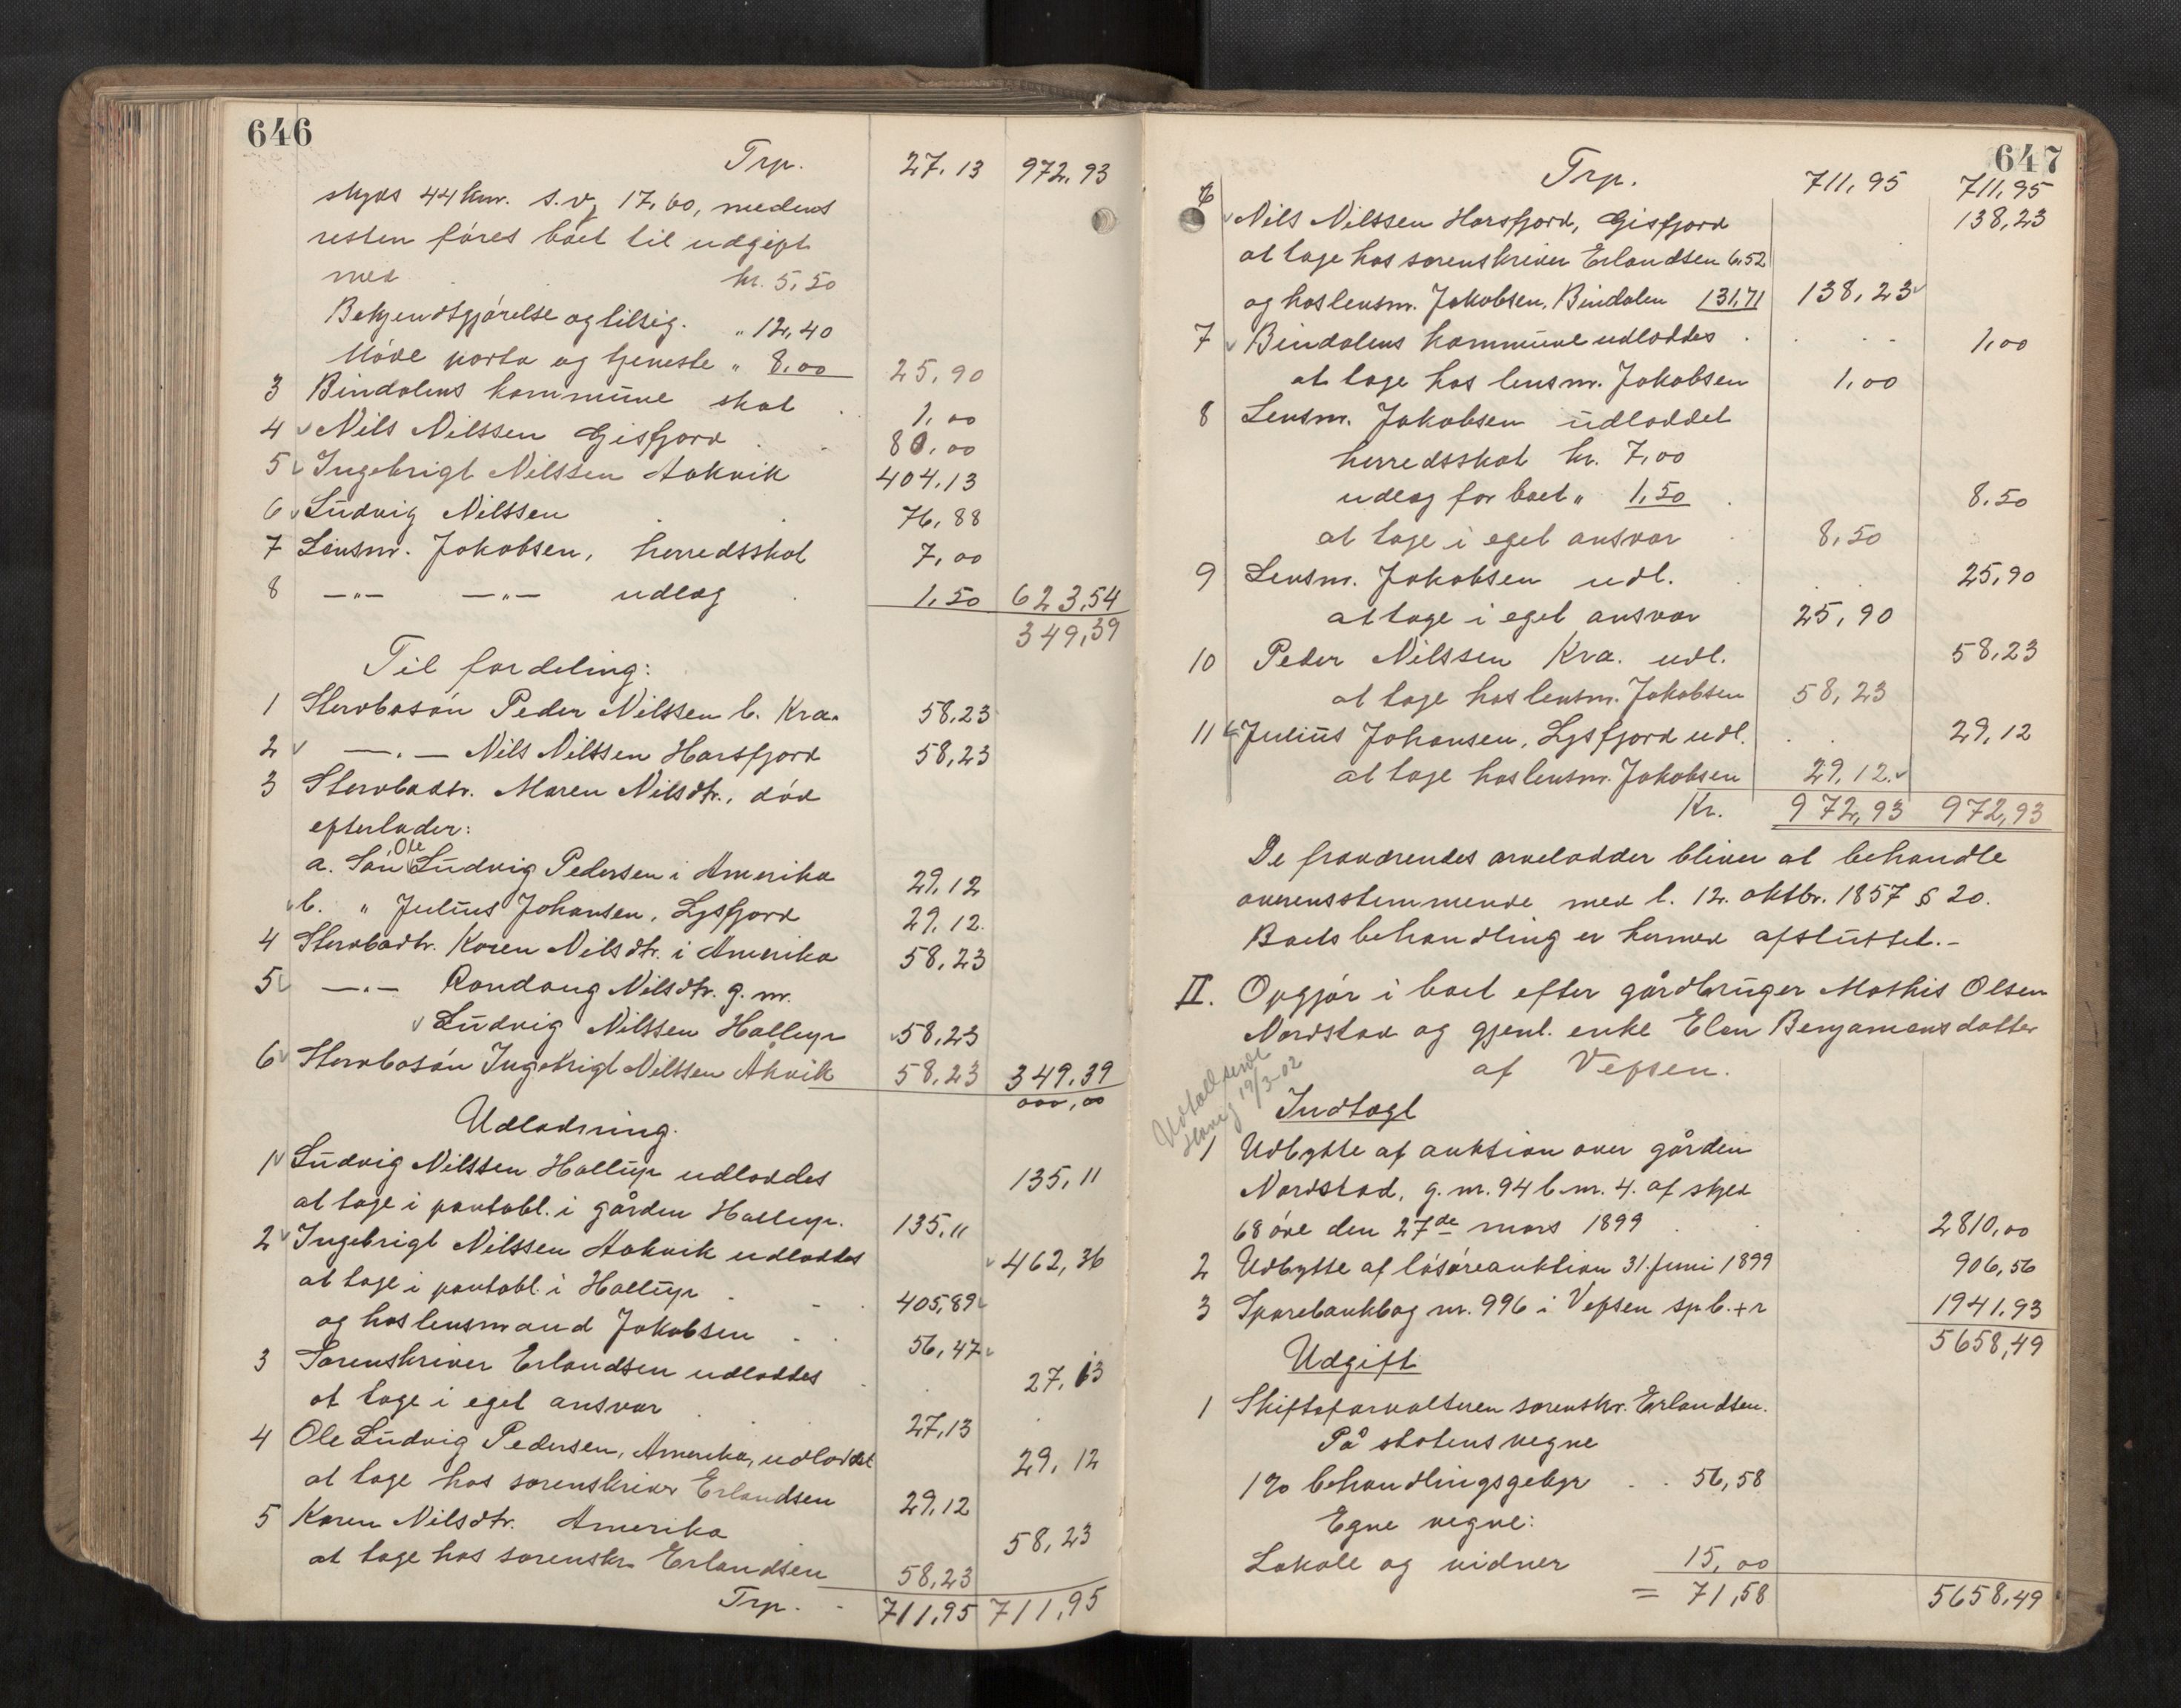 646
Trp. 27,13 972,93
skyds 44 km. s.v. 17,60, medens
resten föres boet til udgift
med kr. 5,50
Bekjendtgjörelse og tilsig. " 12,40
Möde porto og tjeneste " 8,00 25,90
3 Bindalens kommune skat 1,00
4 Nils Nilssen Gisfjord 80,00
5 Ingebrigt Nilssen Aakvik 404,13
6 Ludvig Nilssen 76,88
7 Lensm. Jakobsen, herredsskat 7,00
8 —"— —"— udlæg 1,50 623,54
349,39
Til fordeling:
1 Stervbosön Peder Nilssen b. Kra. 58,23
2 —"— Nils Nilssen Horsfjord 58,23
3 Stervbodtr. Maren Nilsdtr., död
efterlader:
a. Sön Ole Ludvig Pedersen i Amerika 29,12
b. " Julius Johansen, Lysfjord 29,12
4 Stervbodtr. Karen Nilsdtr. i Amerika 58,23
5 —"— Rondaug Nilsdtr. g. m.
Ludvig Nilssen Hallup 58,23
6 Stervbosön Ingebrigt Nilssen Åkvik 58,23 349,39
000,00
Udlodning.
1 Ludvig Nilssen Hallup udloddes 135,11
at tage i pantobl. i gården Hallup. 135,11
2 Ingebrigt Nilssen Aakvik udloddes 462,36
at tage i pantobl. i Hallup 405,89
og hos lensmand Jakobsen 56,47
3 Sorenskriver Erlandsen udloddes 27,13
at tage i eget ansvar 27,13
4 Ole Ludvig Pedersen, Amerika, udloddet 29,12
at tage hos sorenskriver Erlandsen 29,12
5 Karen Nilsdtr. Amerika 58,23
at tage hos sorenskr. Erlandsen 58,23
Trp. 711,95 711,95
647
Trp. 711,95 711,95
6 Nils Nilssen Horsfjord, Gisfjord 138,23
at tage hos sorenskriver Erlandsen 6,52
og hos lensm. Jakobsen, Bindalen 131,71 138,23
7 Bindalens kommune udloddes 1,00
at tage hos lensm. Jakobsen 1,00
8 Lensm. Jakobsen udloddet
herredsskat kr. 7,00
udlæg for boet " 1,50 8,50
at tage i eget ansvar 8,50
9 Lensm. Jakobsen udl. 25,90
at tage i eget ansvar 25,90
10 Peder Nilssen Kra. udl. 58,23
at tage hos lensm. Jakobsen 58,23
11 Julius Johansen, Lysfjord udl. 29,12
at tage hos lensm. Jakobsen 29,12
Kr. 972,93 972,93
De fraværendes arvelodder bliver at behandle
overensstemmende med l. 12. oktbr. 1857 § 20.
Boets behandling er hermed afsluttet.-
II. Opgjör i boet efter gårdbruger Mathis Olsen
Nordstad og gjenl. enke Elen Benjamensdatter
af Vefsen.
19/3-02
Indtægt
1 Udbytte af auktion over gården
Nordstad, g. nr. 94 b. nr. 4. af skyld
68 öre den 27de mars 1899 2810,00
2 Udbytte af lösöreauktion 31. juni 1899 906,56
3 Sparebankbog nr. 996 i Vefsen spb. + r 1941,93
5658,49
Udgift
1 Skifteforvalteren sorenskr. Erlandsen.
På statens vegne
1% behandlingsgebyr 56,58
Egne vegne:
Lokale og vidner 15,00
= 71,58 5658,49